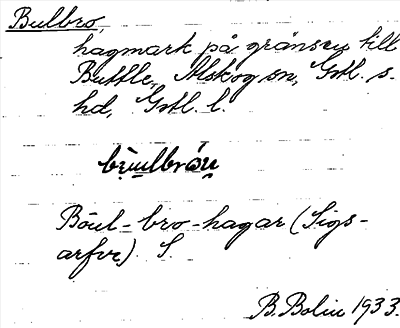 Bulbro,
hagmark på gränsen till
Buttle, Alskog sn, Gotl. s.
hd, Gotl. l.
Bōul-bro-hagar (Sigs-
arfve). S.
B. Bolin 1933.